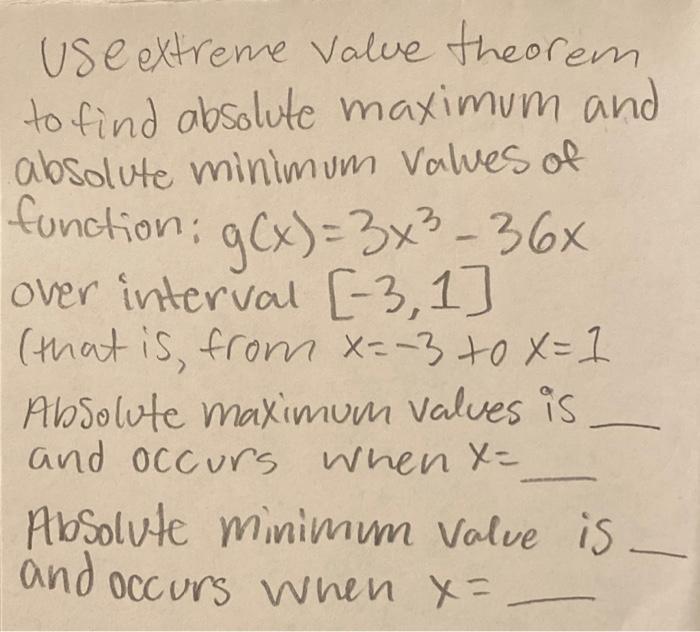 Use extreme value theorem
to find absolute maximum and
absolute minimum values of
function: g(x)=3x³-36x
over interval [-3,1]
(that is, from x=-3 to x=1
Absolute maximum values is __
and occurs when x=__
Absolute minimum value is __
and occurs when x= __